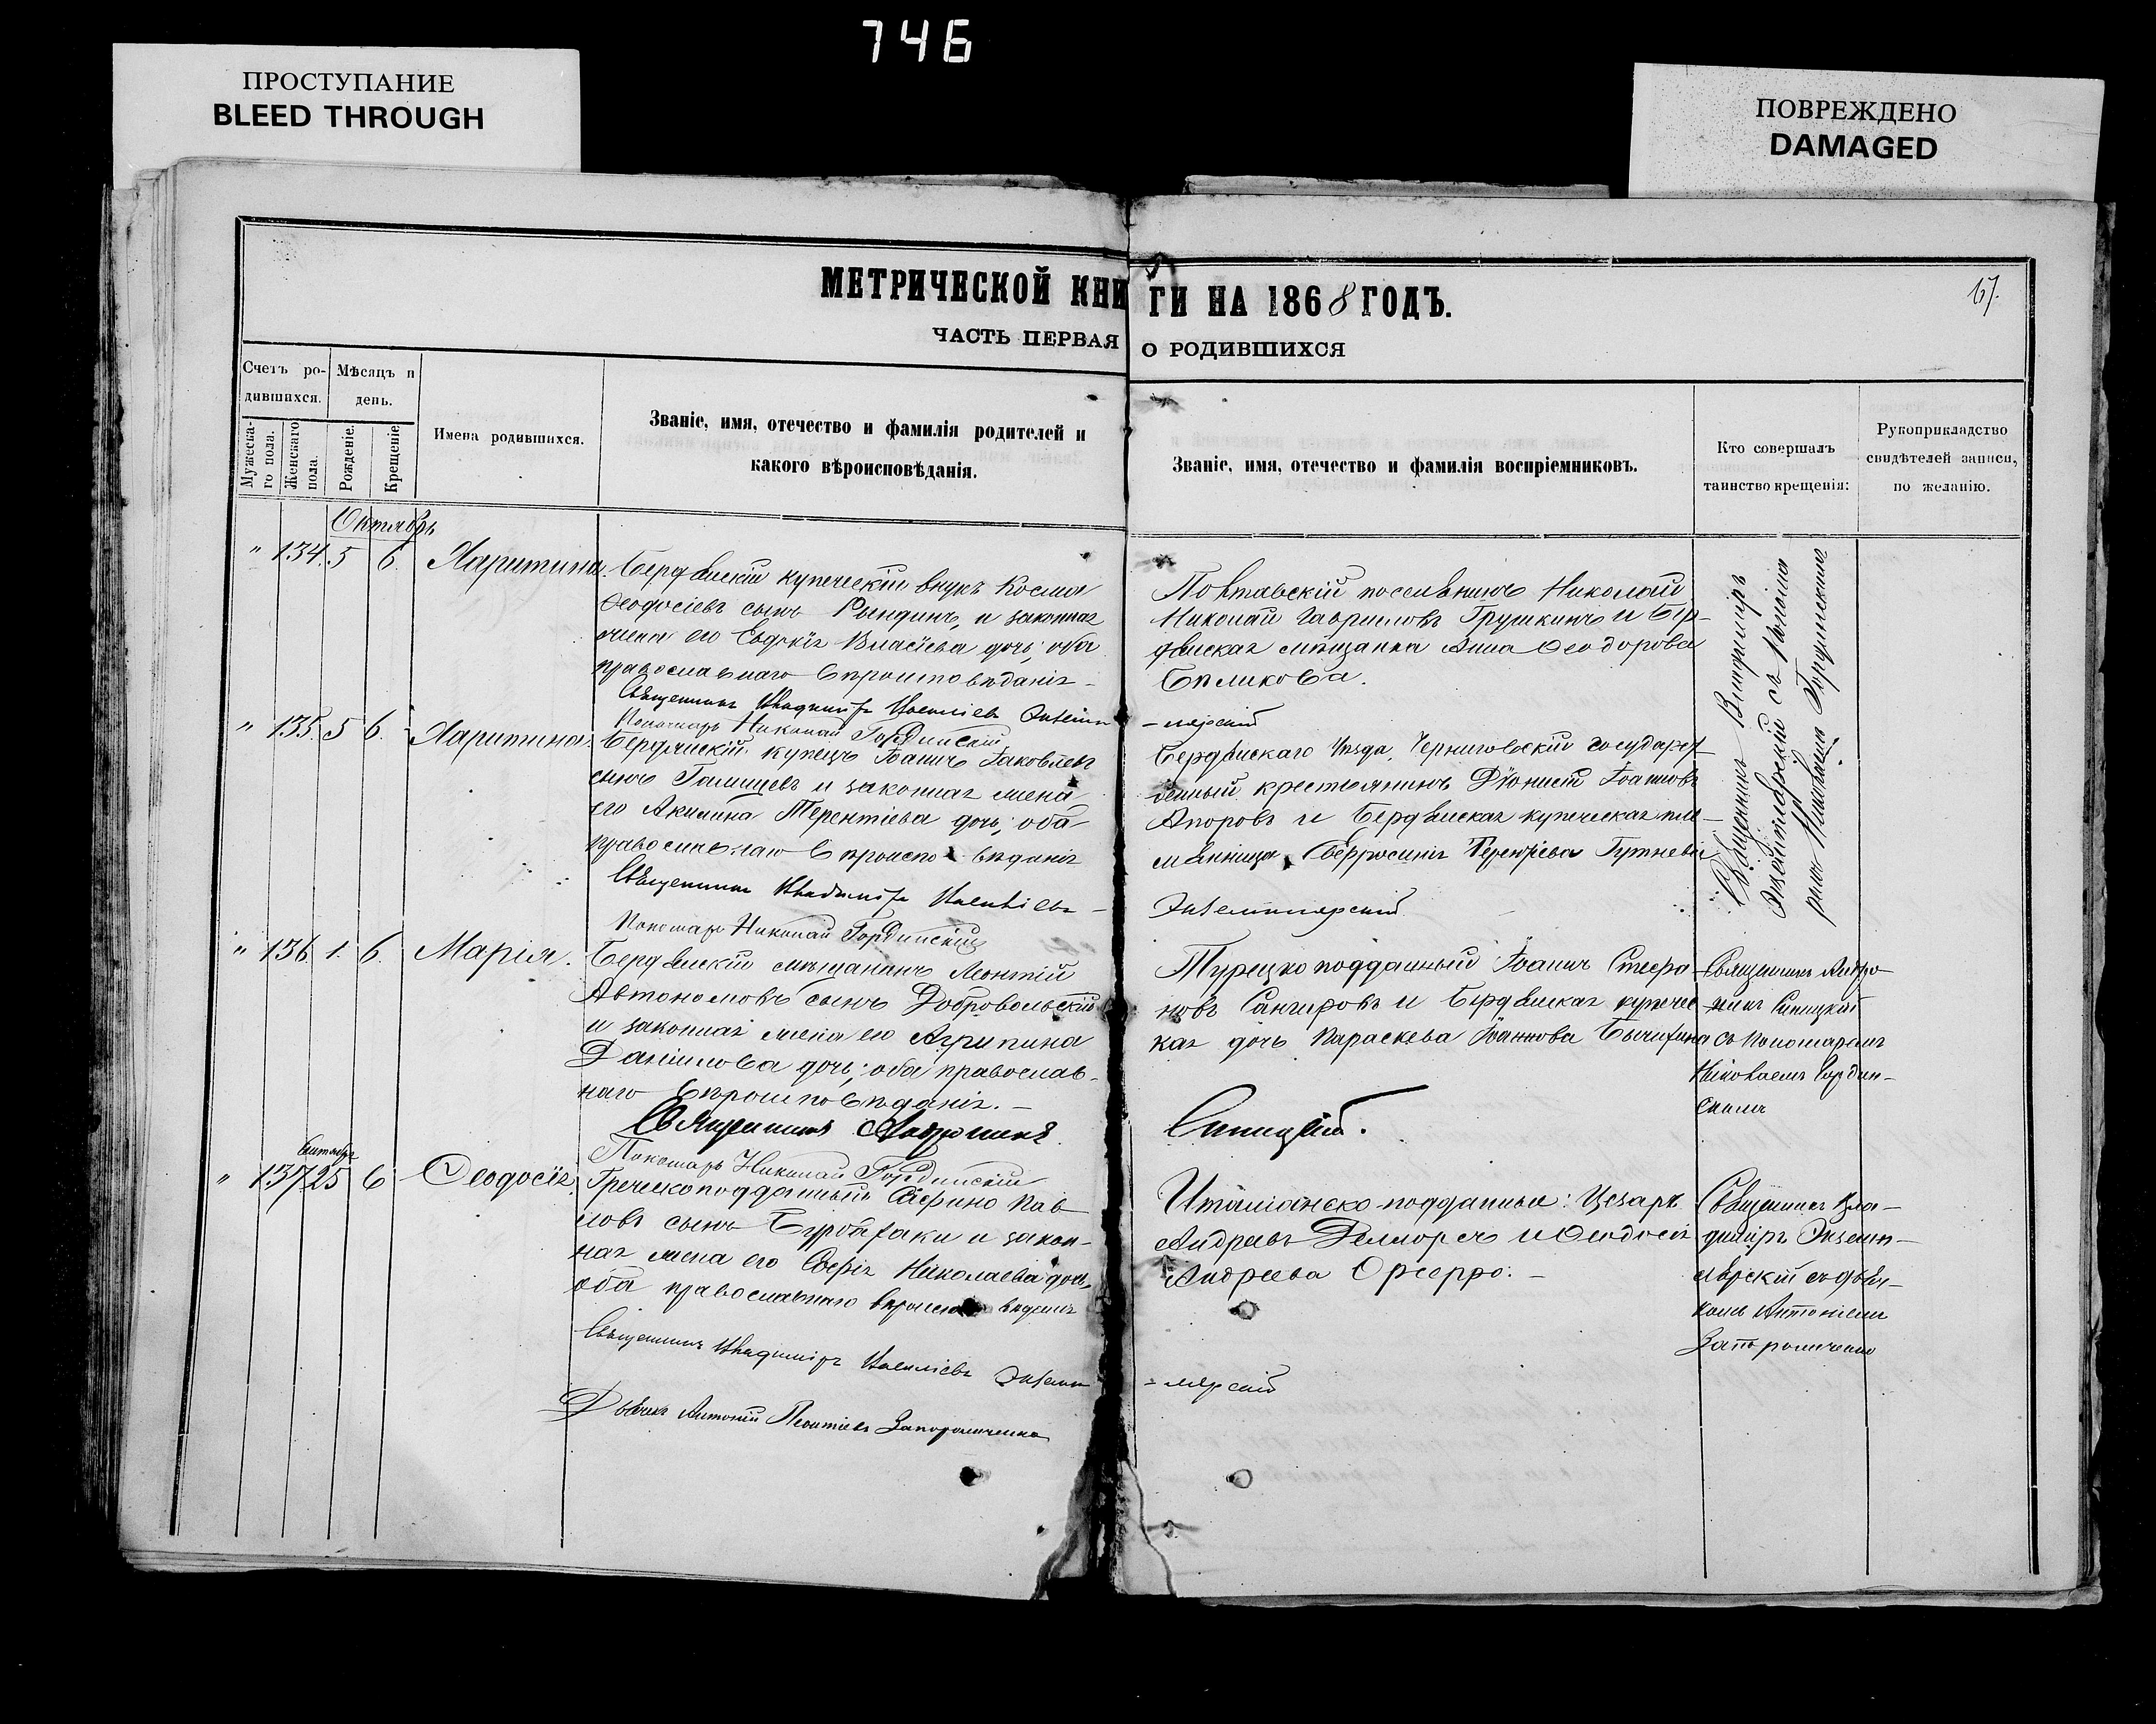 746
ПРОСТУПАНИЕ
BLEED THROUGH
ПОВРЕЖДЕНО
DAMAGED
МЕТРИЧЕСКОЙ КНИГИ НА 1868 ГОДЪ.
17.
ЧАСТЬ ПЕРВАЯ О РОДИВШИХСЯ
Счетъ ро-
дившихся.
Мѣсяцъ и
день.
Мужеска-
го пола.
Женскаго
пола.
Рожденіе.
Крещеніе.
Имена родившихся.
Званіе, имя, отечество и фамилія родителей и
какого вѣроисповѣданія.
Званіе, имя, отечество и фамилія воспріемниковъ.
Кто совершалъ
таинство крещенія:
Рукоприкладство
свидѣтелей записи,
по желанію.
Октябрь
" 134. 5 6. Харитина.
Бердянскій купеческій внукъ Косма
Ѳеодосіевъ сынъ Рындинъ, и законная
жена его Евдокія Власіева дочь; оба
православнаго вѣроисповѣданія
Священникъ Владиміръ Василіевъ Экземп-
Пономарь Николай Гординскій
Николай
Николай Гавриловъ Грушкинъ и Бер-
дянская мѣщанка Анна Ѳеодорова
Бѣликова.
-лярскій
Священникъ Владиміръ
Экземплярскій съ понома
ремъ Николаемъ Гординскимъ
" 135. 5 6. Харитина
Бердянскій купецъ Іоаннъ Іаковлевъ
сынъ Галищевъ и законная жена
его Акилина Терентіева дочь; оба
православнаго вѣроисповѣданія
Священникъ Владиміръ Василіевъ
Пономарь Николай Гординскій
Бердянскаго уѣзда, Черниговскій государст
венный крестьянинъ Діонисій Іоанновъ
и Бердянская купеческая пле-
мянница Евфросинія Терентіева
Экземплярскій
" 136. 1. 6. Марія.
Бердянскій мѣщанинъ Леонтій
Автономовъ сынъ Добровольскій
и законная жена его Агрипина
Даніилова дочь; оба православ-
наго вѣроисповѣданія.
Священникъ
Пономарь Николай Гординскій
Турецкоподданный Іоаннъ Стефа-
новъ и Бердянская купечес
кая дочь Параскева Іоаннова
Синицкій.
Священникъ
Синицкій
съ пономаремъ
Николаемъ Гордин-
скимъ
Сентябрь
" 137 25 6 Ѳеодосія.
Греческоподданный Пав
ловъ сынъ и закон-
ная жена его Софія Николаева дочь,
оба православнаго вѣроисповѣданія
Священникъ Владиміръ Василіевъ Экземп
Дьячекъ Антоній Леонтіевъ Запорожченко
Италіанско-подданные: Цезарь
Андреевъ и Ѳеодосія
Андреева
-лярскій
Священникъ Вла-
диміръ Экземп-
лярскій съ дьяч-
комъ Антоніемъ
Запорожченко